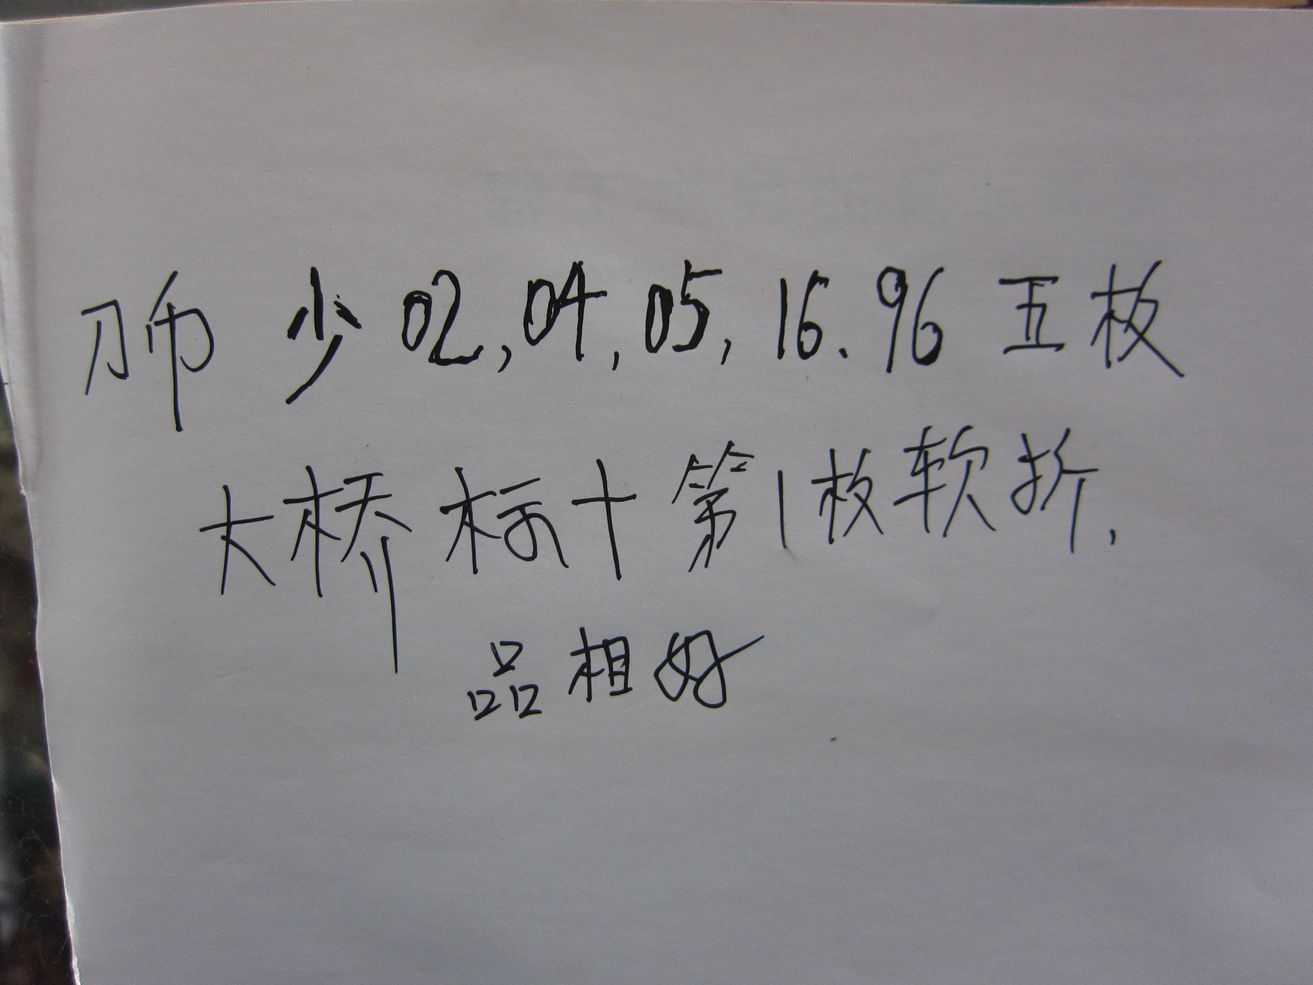 刀币 少 02,04,05,16、96 五枚
大桥标十第1枚软折.
品相好